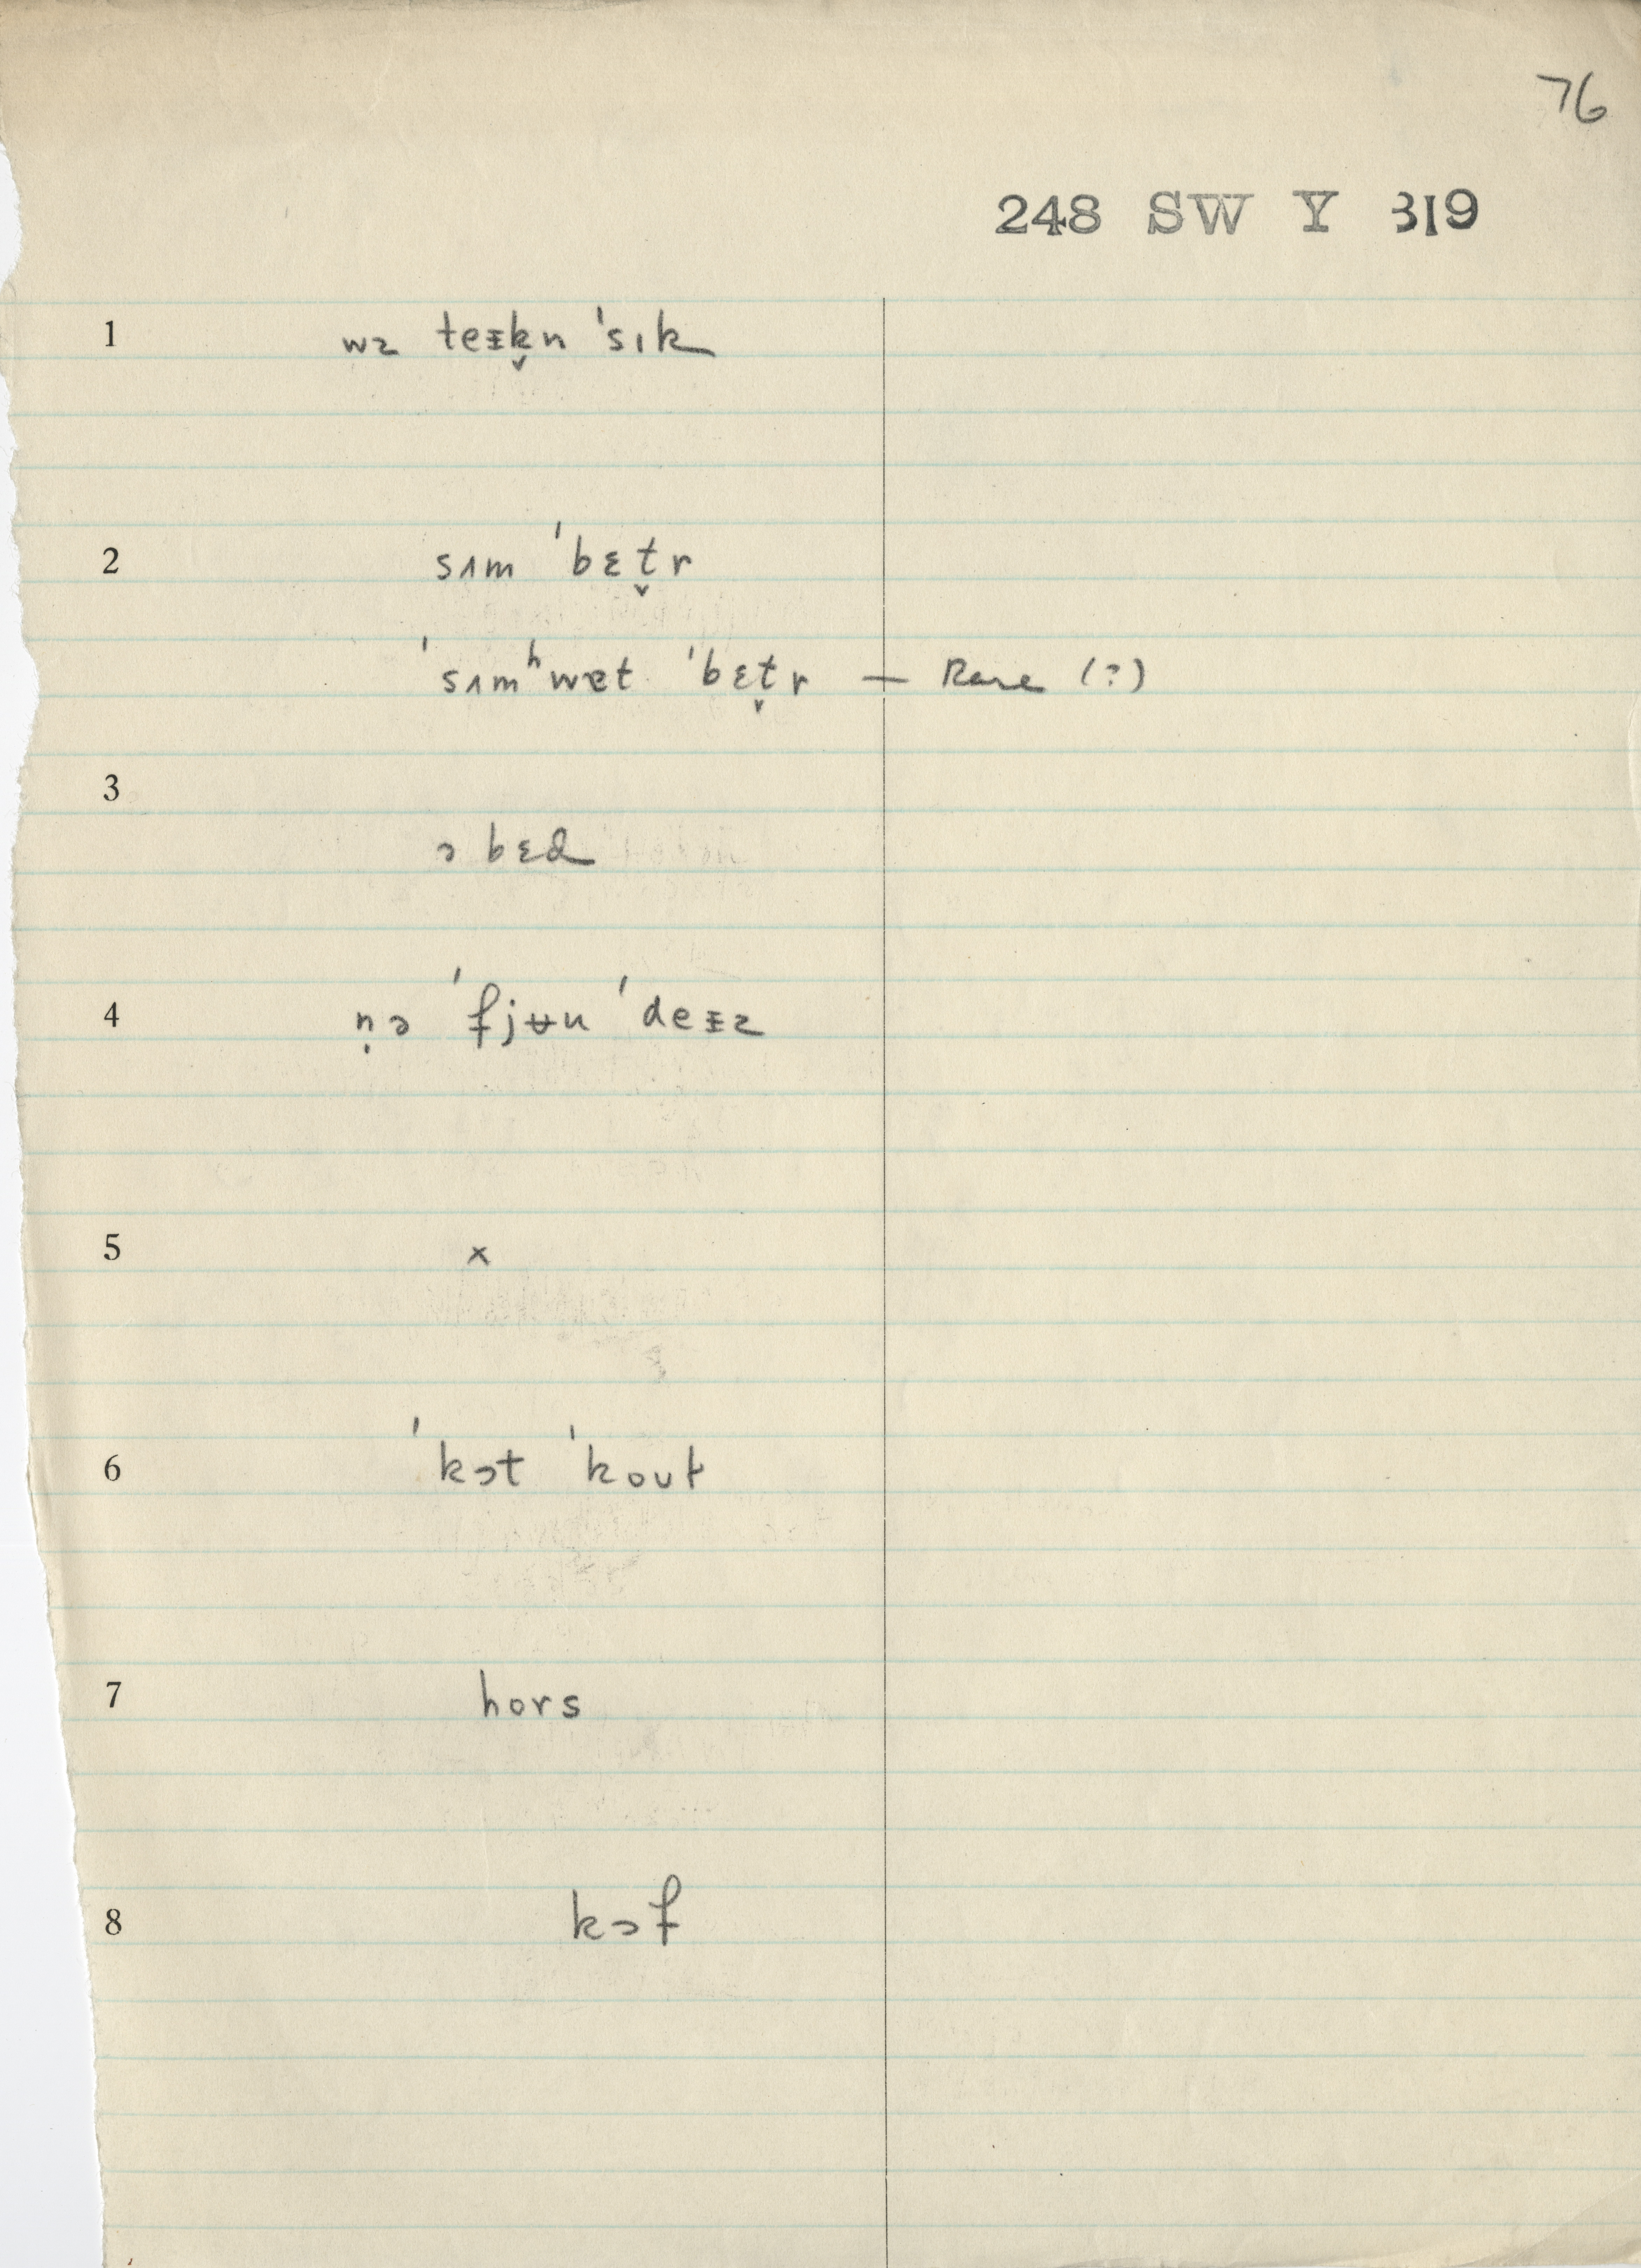 76
248 SW Y 319
1 wz teᵻk̬n ˈsɪk
2 sʌm ˈbɛt̬r
ˈsʌmʰwɐt ˈbɛt̬r — Rare (?)
3 ə bɛd
4 ṇə ˈfjʉu ˈdeᵻz
5 x
6 ˈkɔt ˈkoʊɫ
7 hors
8 kɔf